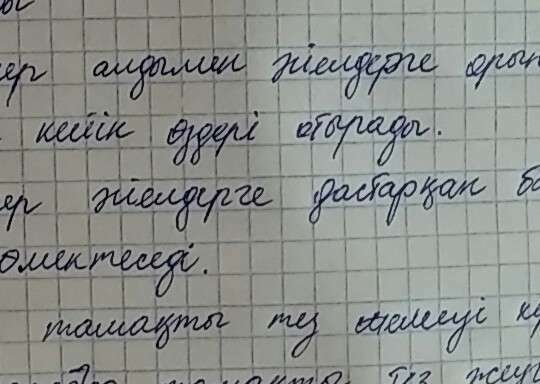 ер алдымен әйелдерге орын
кейін өздері отырады.
ер әйелдерге дастарқан ба
өмектеседі.
тамақты тез жемеуі к
тез жеу